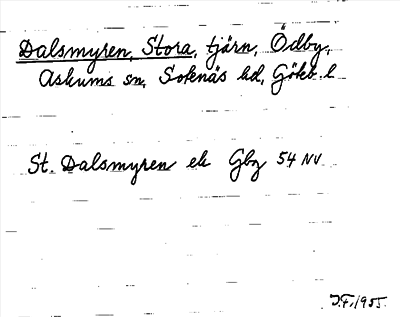 Dalsmyren, Stora, tjärn, Ödby,
Askums sn, Sotenäs hd, Göteb. l
St. Dalsmyren ek Gbg 54 NV
J.F. 1955.